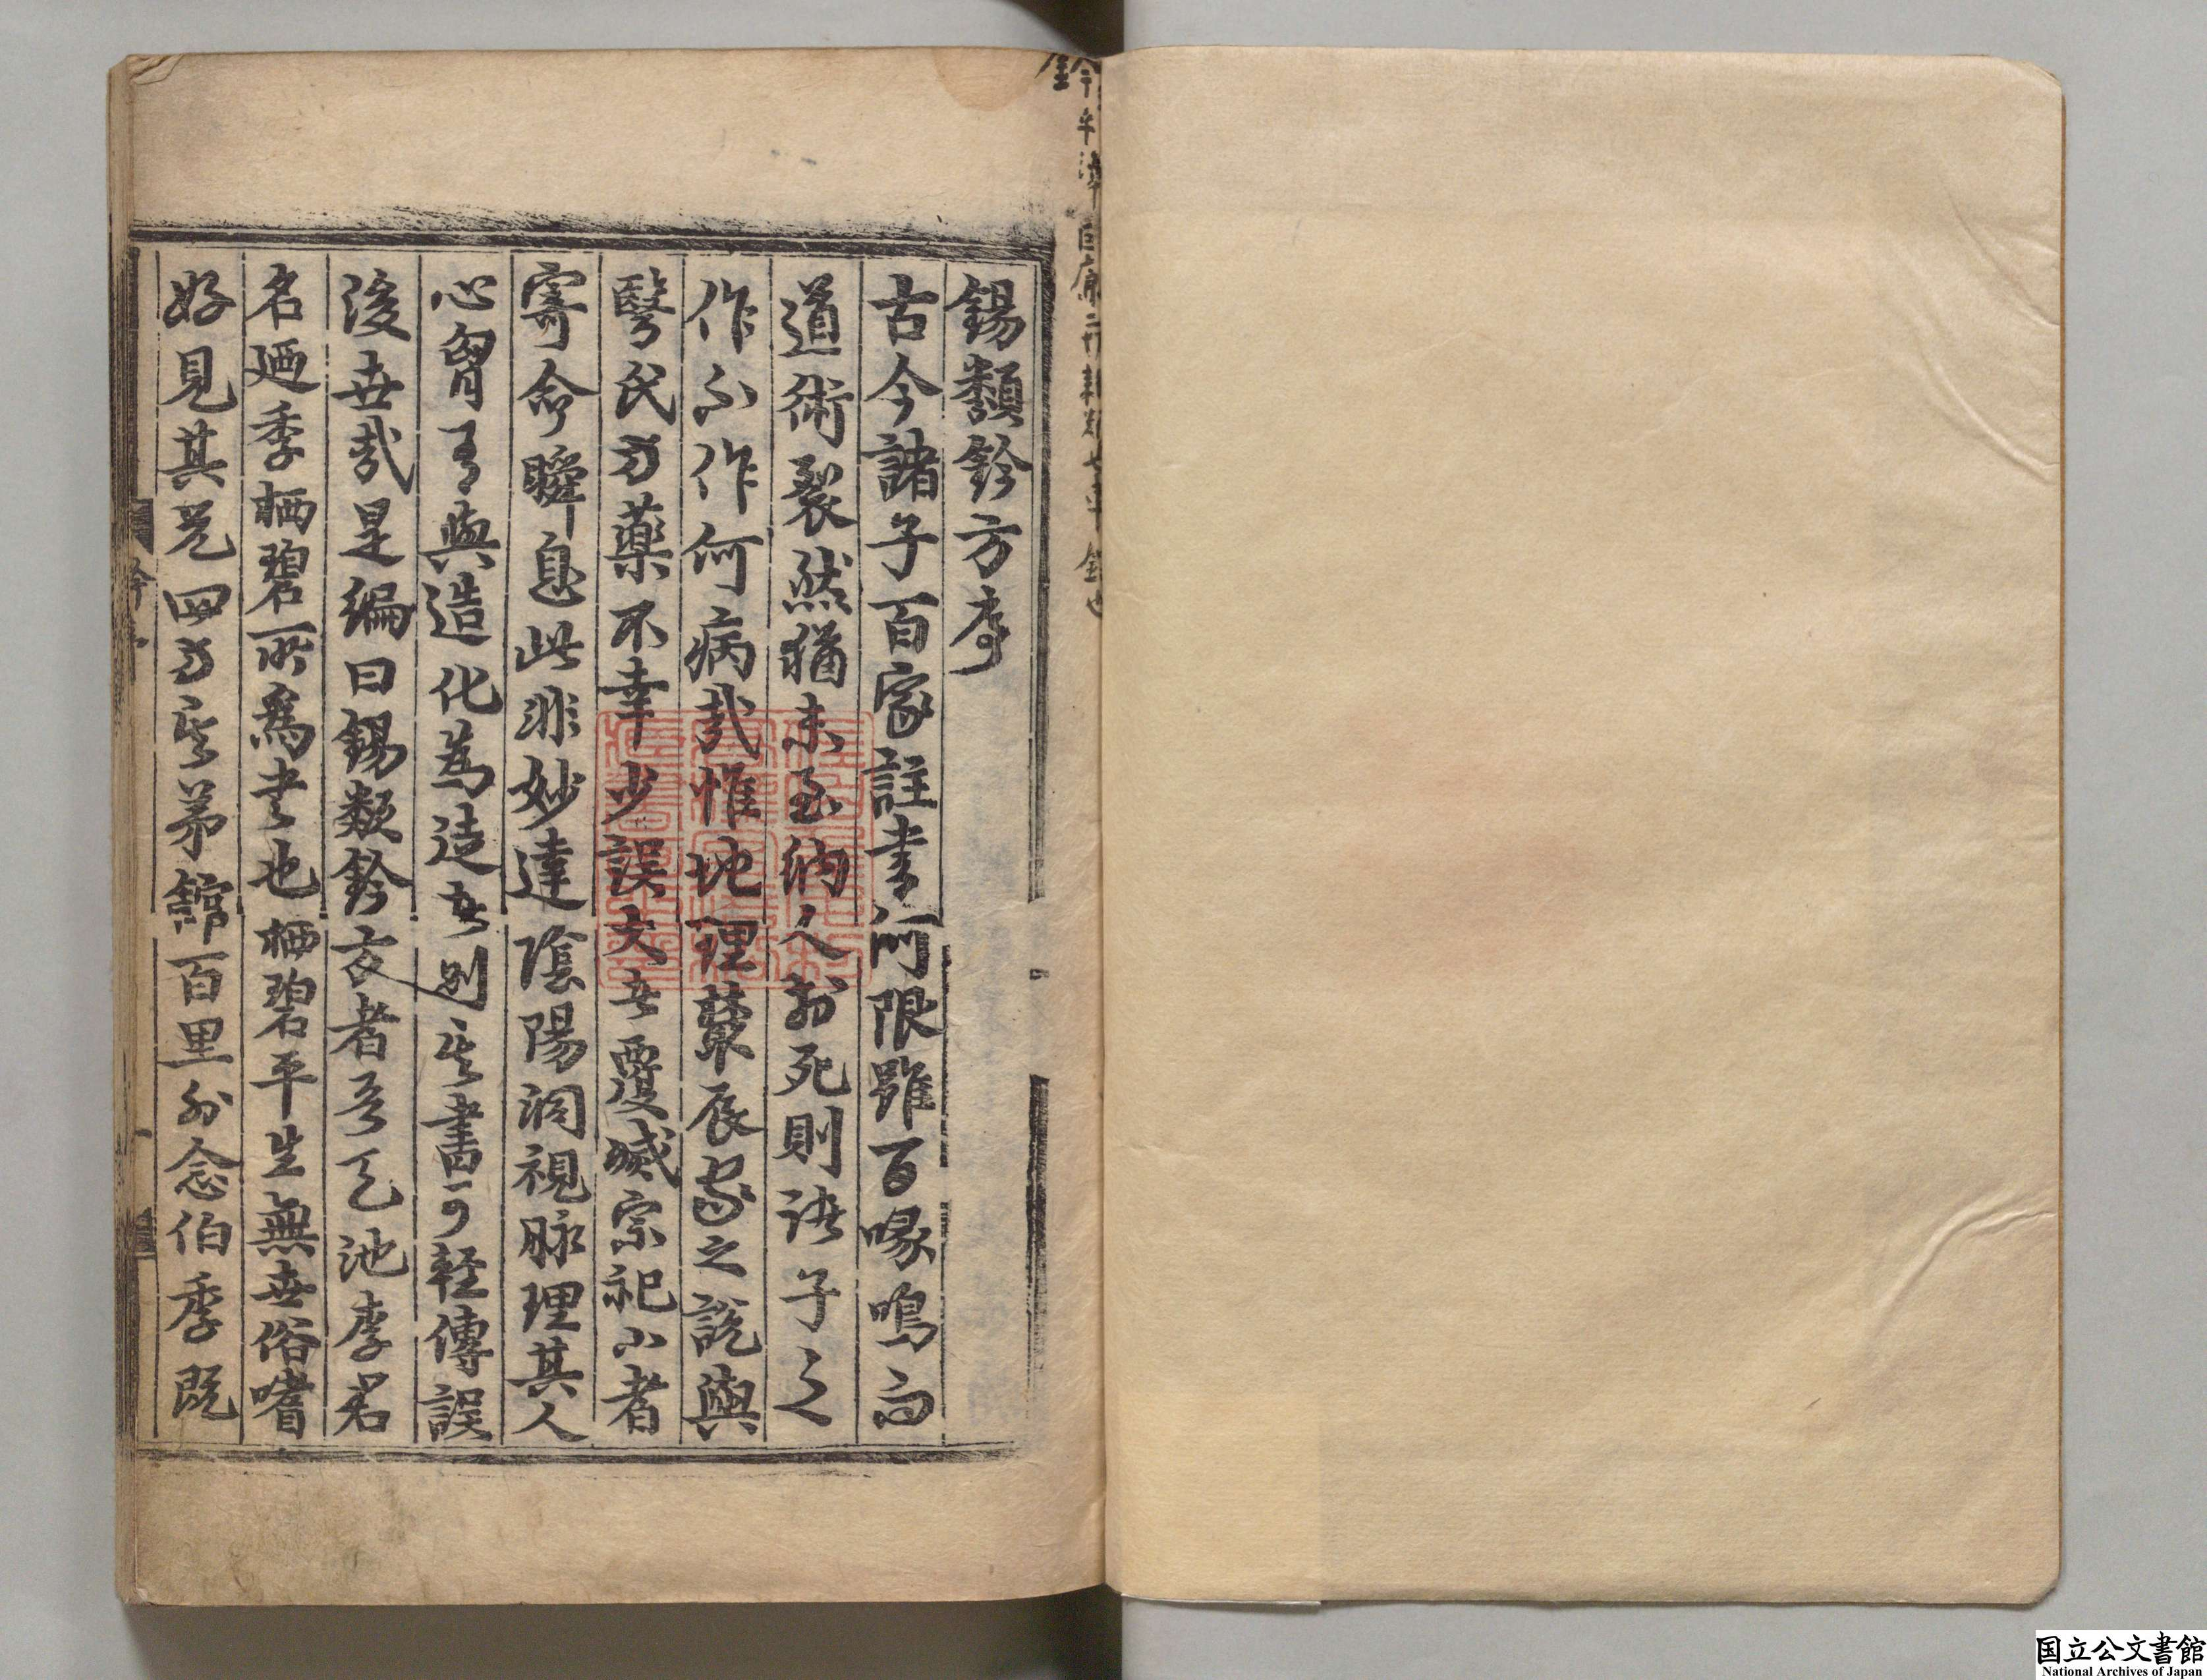 錫類鈐方序
古今諸子百家註書何限雖百喙鳴而
道術裂然猶未至納人於死則諸子之
作不作何病哉惟地理叢辰家之說與
醫氏方藥不幸少誤大者覆滅宗祀小者
寄命瞬息此非妙達陰陽洞視脉理其人
心胷有與造化為徒者別其書可輕傳誤
後世哉是編曰錫類鈐方者吾天池李君
名廼季栖碧所為書也栖碧平生無世俗嗜
好見其兄四方其弟舘百里外念伯季既
国立公文書館
National Archives of Japan